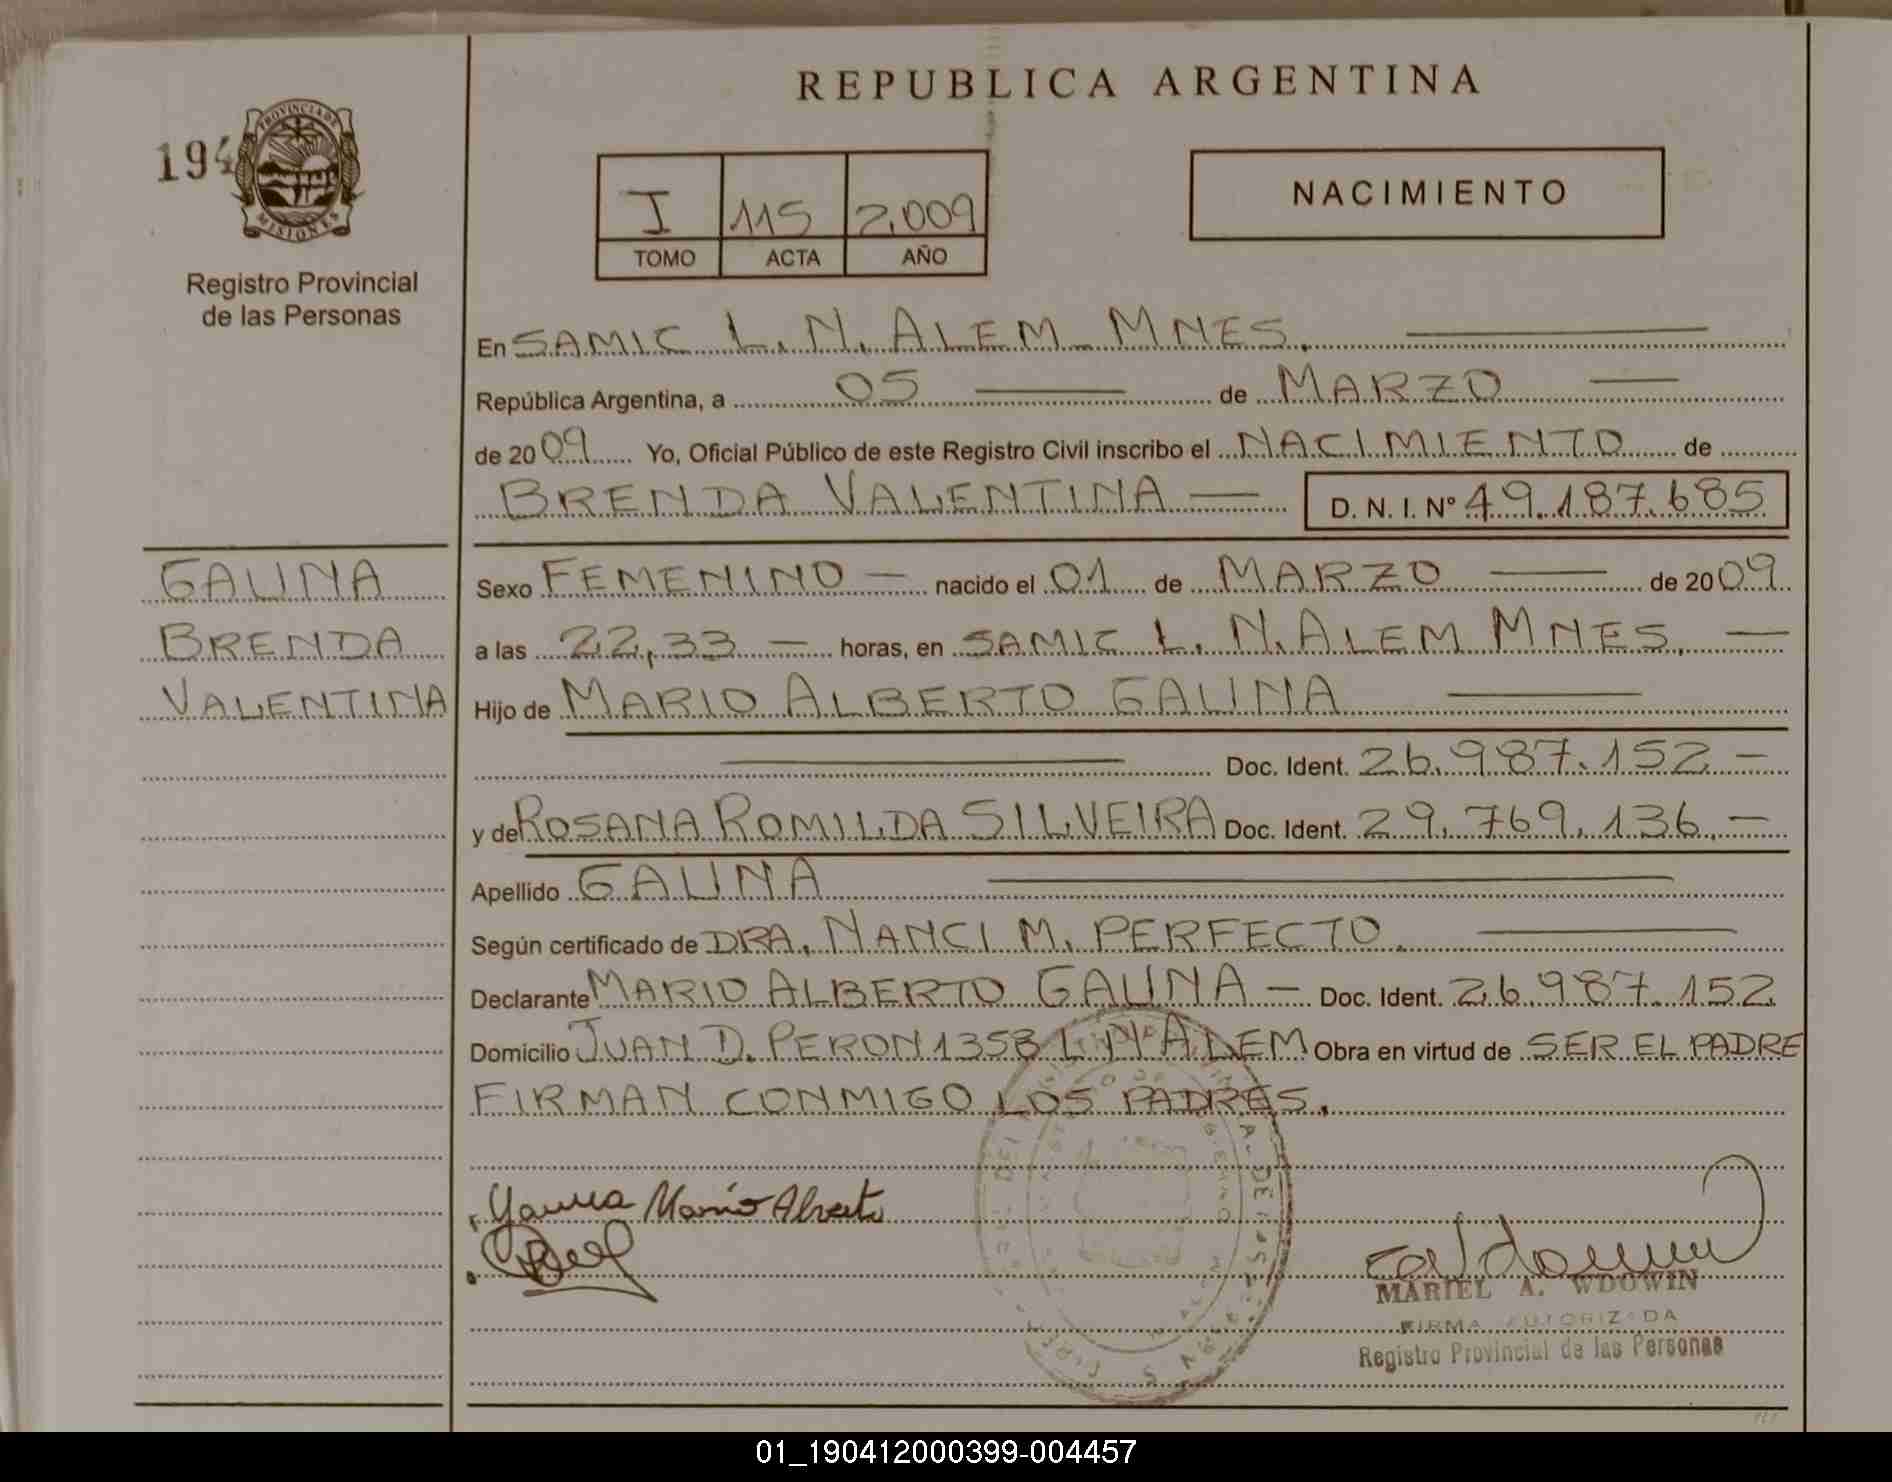 REPUBLICA ARGENTINA
194
PROVINCIA DE
MISIONES
Registro Provincial
de las Personas
I 115 2.009
TOMO ACTA AÑO
NACIMIENTO
En SAMIC L. N. ALEM MNES.
República Argentina, a 05 de MARZO
de 2009 Yo, Oficial Público de este Registro Civil inscribo el NACIMIENTO de
BRENDA VALENTINA D. N. I. Nº 49.187.685
GAUNA
BRENDA
VALENTINA
Sexo FEMENINO nacido el 01 de MARZO de 2009
a las 22,33 horas, en SAMIC L. N. ALEM MNES.
Hijo de MARIO ALBERTO GAUNA
Doc. Ident. 26.987.152
y de ROSANA ROMILDA SILVEIRA Doc. Ident. 29.769.136.
Apellido GAUNA
Según certificado de DRA. NANCI M. PERFECTO.
Declarante MARIO ALBERTO GAUNA Doc. Ident. 26.987.152
Domicilio JUAN D. PERON 1358 L N ALEM Obra en virtud de SER EL PADRE
FIRMAN CONMIGO LOS PADRES.
Gauna Mario Alberto
MARIEL A. WDOWIN
FIRMA AUTORIZADA
Registro Provincial de las Personas
01_190412000399-004457